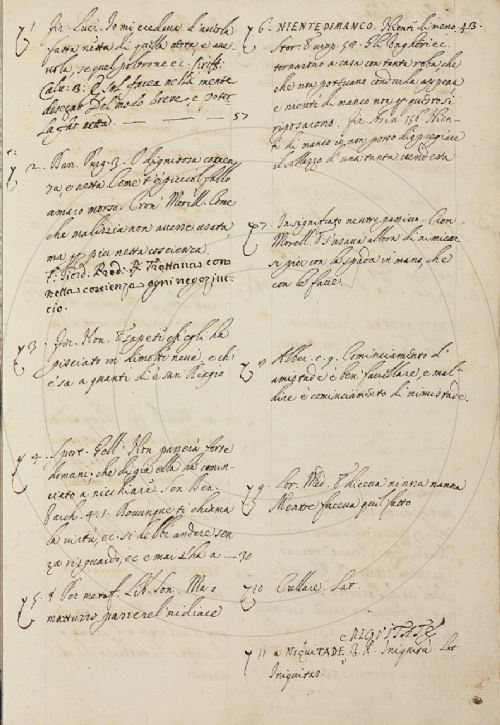 1 Fir. Luci. Io mi credeva d'averla
fatta netta di
vola, se quel poltrone ec.
Calv. 3. E sol facea nella mente
disegno Del modo breve, e poter
la far netta. 57
2. Dan. Purg. 3. O dignitosa coscien-
za, e netta Come t'è picciol fallo
amaro morso. Cron. Morell. Come
che malizia non avesse usata,
ma più netta coscienza
F. Giord. Pred. R. Trattava con
netta coscienza ogni negozju-
cio.
3. Fir. Nov. Sapete ch'egli ha
pisciato in di molte neve, e che
e' sa a quanti dì è san Biagio
4. Sport. Gell. Non passerà forse
domani, che di già ella ha comin-
ciato a nicchiare. Sen. Ben.
Varch. 4. 1. Dovunque ti chiama
la virtù, ec. si debbe andare sen
za risguardo, ec. e mai ha a 30
5. Per metaf. Lib. Son. Ma o
matturzo parrere'l nidiace
6. NIENTEDIMANCO. Nientedimeno. 43.
Stor. Eurpp. 59. Gli Ongheri ec.
tornarono a casa con tanta roba che
che non potevano condurla appena
e niente di manco non per questo si
riposarono. Fir. Asin. 156 Nien-
te di manco io non posso dispregiare
il sollazzo d'una tanta vendetta
7. In signific. neutr. passivo. Cron.
Morell. S'usava allora di nimicar
si più con la spada in mano, che
con le fave.
8 Alber. c. 9. Cominciamento d'
amistade è ben favellare, e mal-
dire è cominciamento di nimistade.
9. Lor. Med. Faceva ninna nanna
Mentre faceva quel fatto
10 Cullare. Lat
c NIQUITATE
11 a NIQUITADE. V. A. Iniquità Lat
Iniquitas.